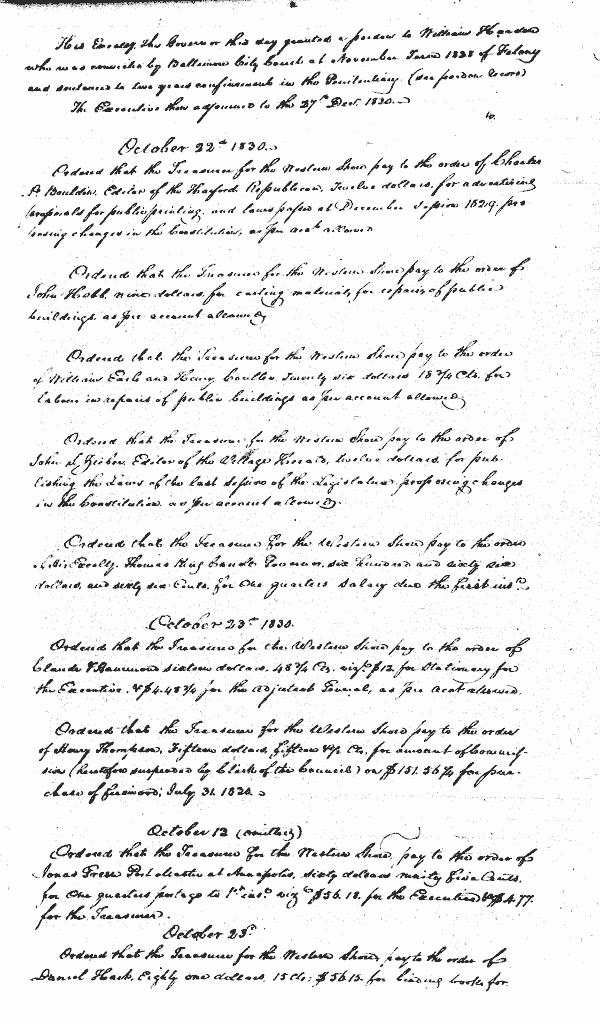 His Excellcy. the Governor this day granted a pardon to William
who was convicted by Baltimore City Court at November Term 1828 of Felony
and sentenced to two years confinement in the Penitentiary. (see pardon record)
The Executive then adjourned to the 27th Decr. 1830.
October 22nd 1830.
Ordered that the Treasurer for the Western Shore pay to the order of
P. Bouldin, Editor of the Harford Republican, Twelve dollars, for advertising
proposals for public printing, and laws passed at December Session 1829. pro
posing changes in the Constitution, as per acct. allowed
Ordered that the Treasurer for the Western Shore pay to the order of
John Hobb, nine dollars, for carting materials, for repairs of public
buildings. as per account allowed
Ordered that the Treasurer for the Western Shore pay to the order
of William Earle and Henry Coulter, Twenty six dollars 18 3/4 Cts. for
labour in repairs of public buildings as per account allowed
Ordered that the Treasurer for the Western Shore pay to the order of
John S. Editor of the Village Herald, twelve dollars. for pub-
lishing the Laws of the last session of the Legislature proposing changes
in the Constitution as per account allowed.
Ordered that the Treasurer for the Western Shore pay to the order
of His Excelly. Thomas King Carroll Governor, six hundred and sixty six
dollars, and sixty six Cents, for one quarters salary due the first inst.
October 23rd 1830.
Ordered that the Treasurer for the Western Shore pay to the order of
Claude & Hammond sixteen dollars. 48 3/4 Cts. vizt. $12 for Stationary for
the Executive. & $4.48 3/4 for the Adjutant General, as per acct allowed.
Ordered that the Treasurer for the Western Shore pay to the order
of Henry Thompson, Fifteen dollars, fifteen Cts. for amount of Commis-
sion (heretofore suspended by Clerk of the Council) on for pur-
chase of firewood; July 31. 1830.
October 12 (omitted)
Ordered that the Treasurer for the Western Shore, pay to the order of
Jonas Green Post Master at Annapolis, sixty dollars ninety five Cents.
for one quarters postage to 1st inst. vizt. $56.18. for the Executive & $4.77.
for the Treasurer.
October 23d
Ordered that the Treasurer for the Western Shore, pay to the order of
Daniel Hack, Eighty one dollars. 15 Cts: $56.15. for binding books for